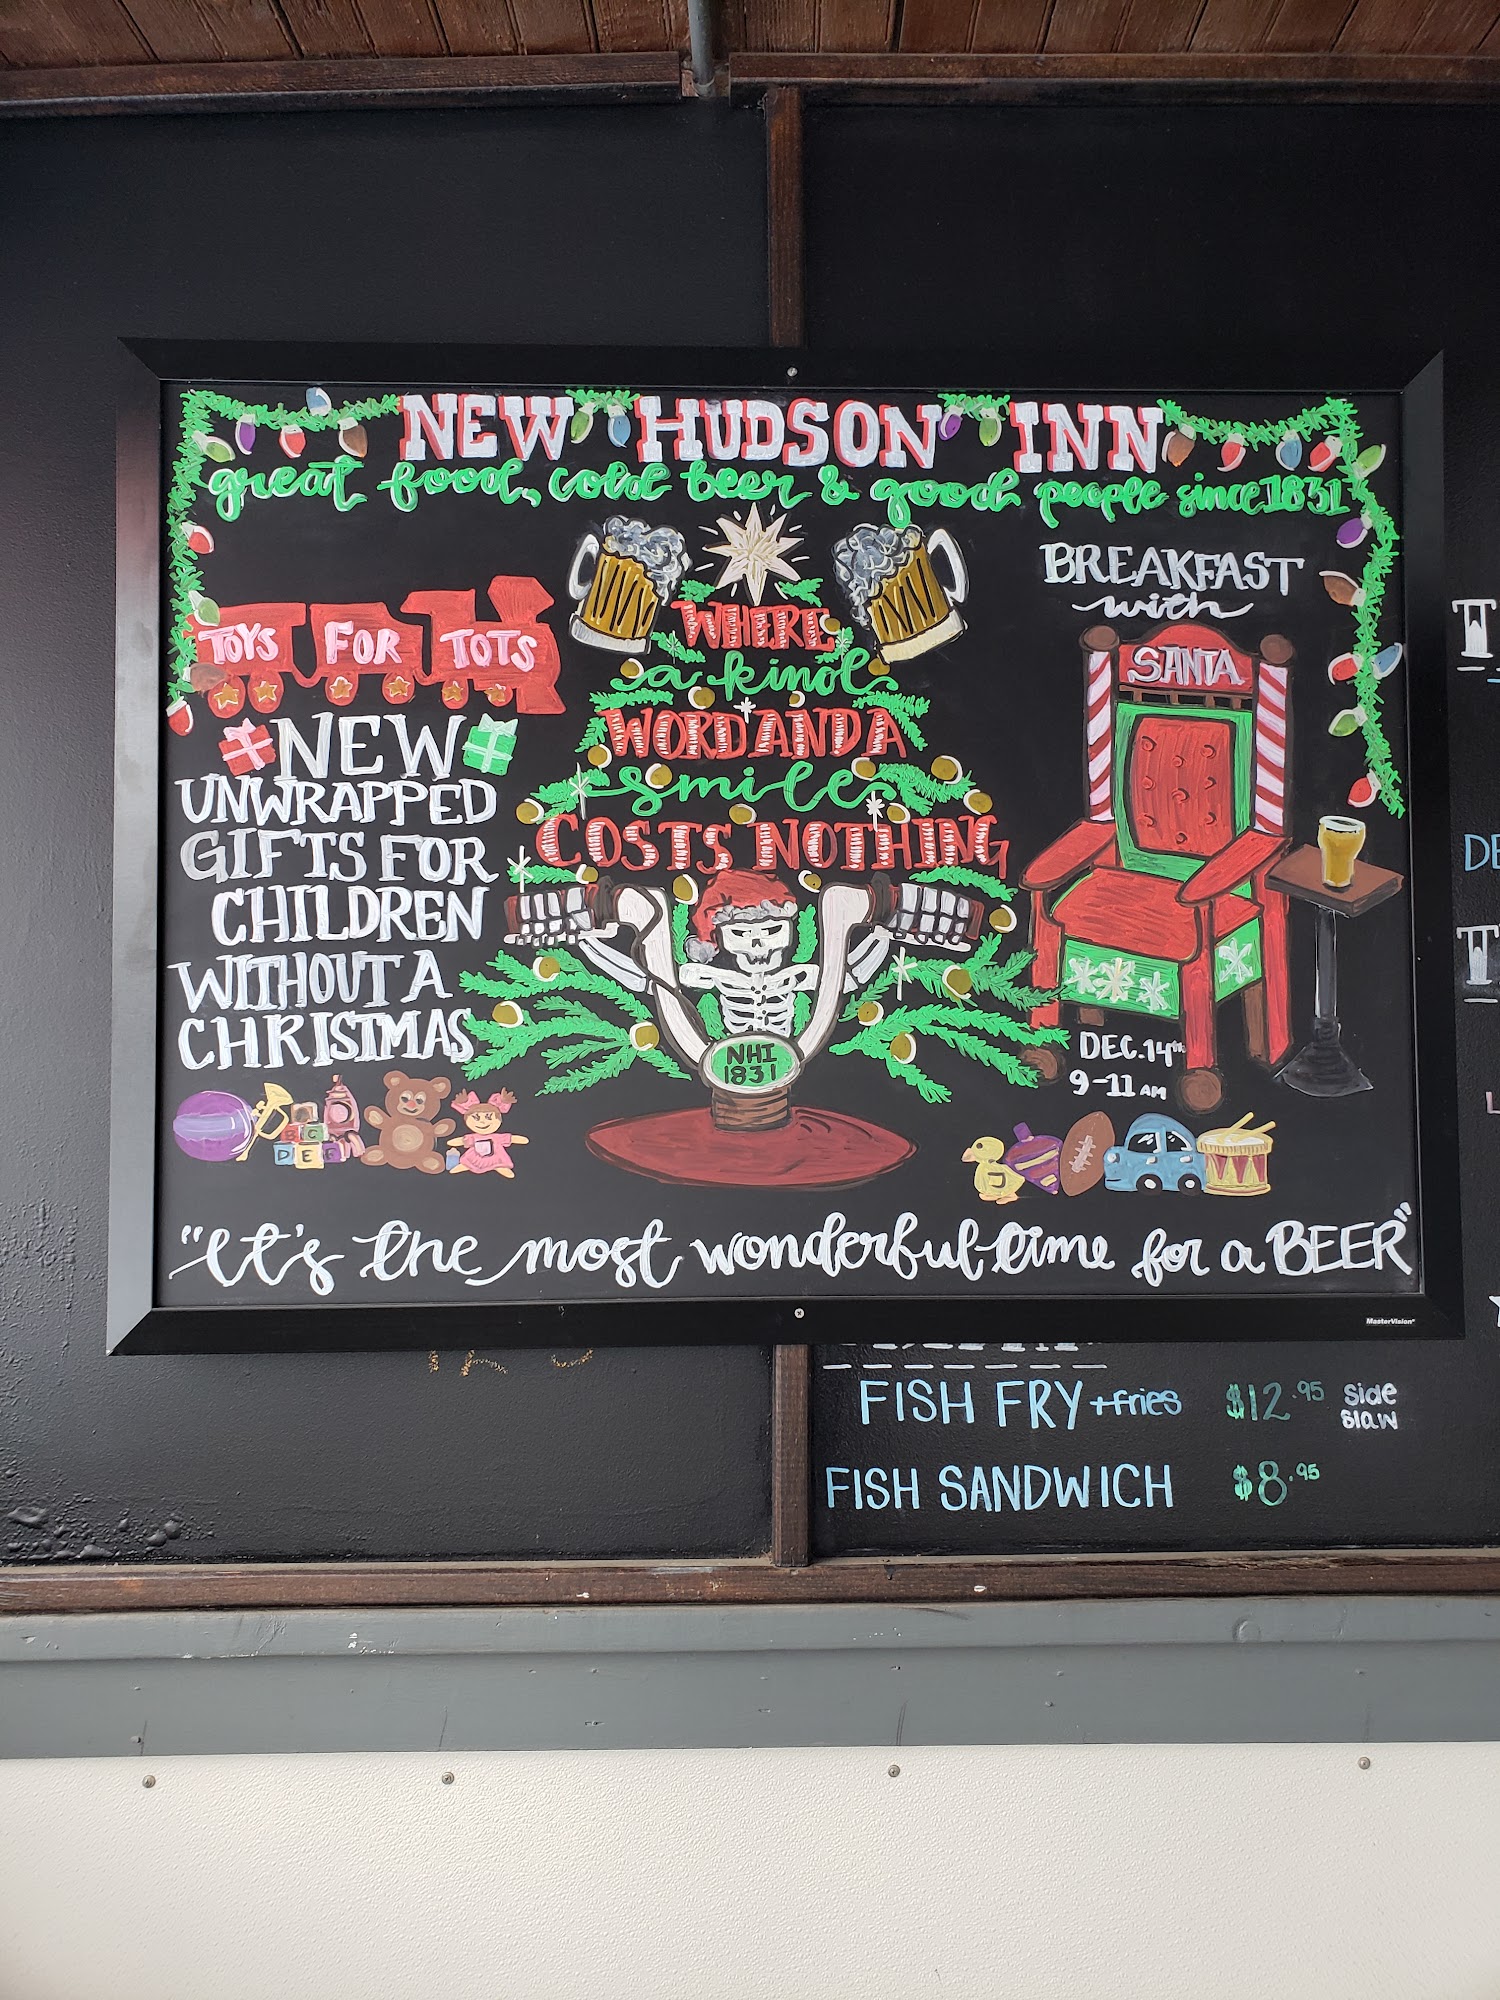 NEW HUDSON INN
great food, cold beer & good people since 1831
TOYS FOR TOTS
NEW
UNWRAPPED
GIFTS FOR
CHILDREN
WITHOUT A
CHRISTMAS
WHERE
a kind
WORD AND A
smile
COSTS NOTHING
NHI
1831
BREAKFAST
with
SANTA
DEC. 14TH
9-11 AM
B C
D E F
"It's the most wonderful time for a BEER"
MasterVision
FISH FRY + fries $12.95 side slaw
FISH SANDWICH $8.95